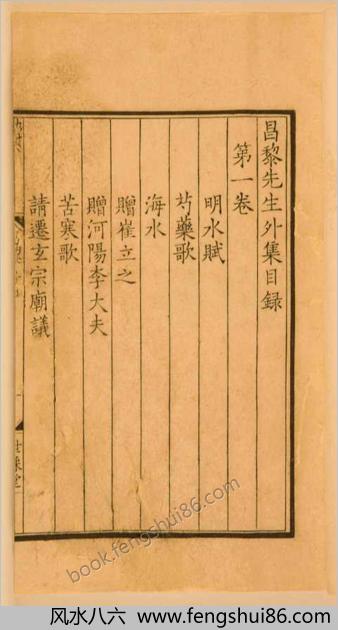 昌黎先生外集目録
第一卷
明水賦
芍藥歌
海水
贈崔立之
贈河陽李大夫
苦寒歌
請遷玄宗廟議
世綵堂
book.fengshui86.com
风水八六 www.fengshui86.com